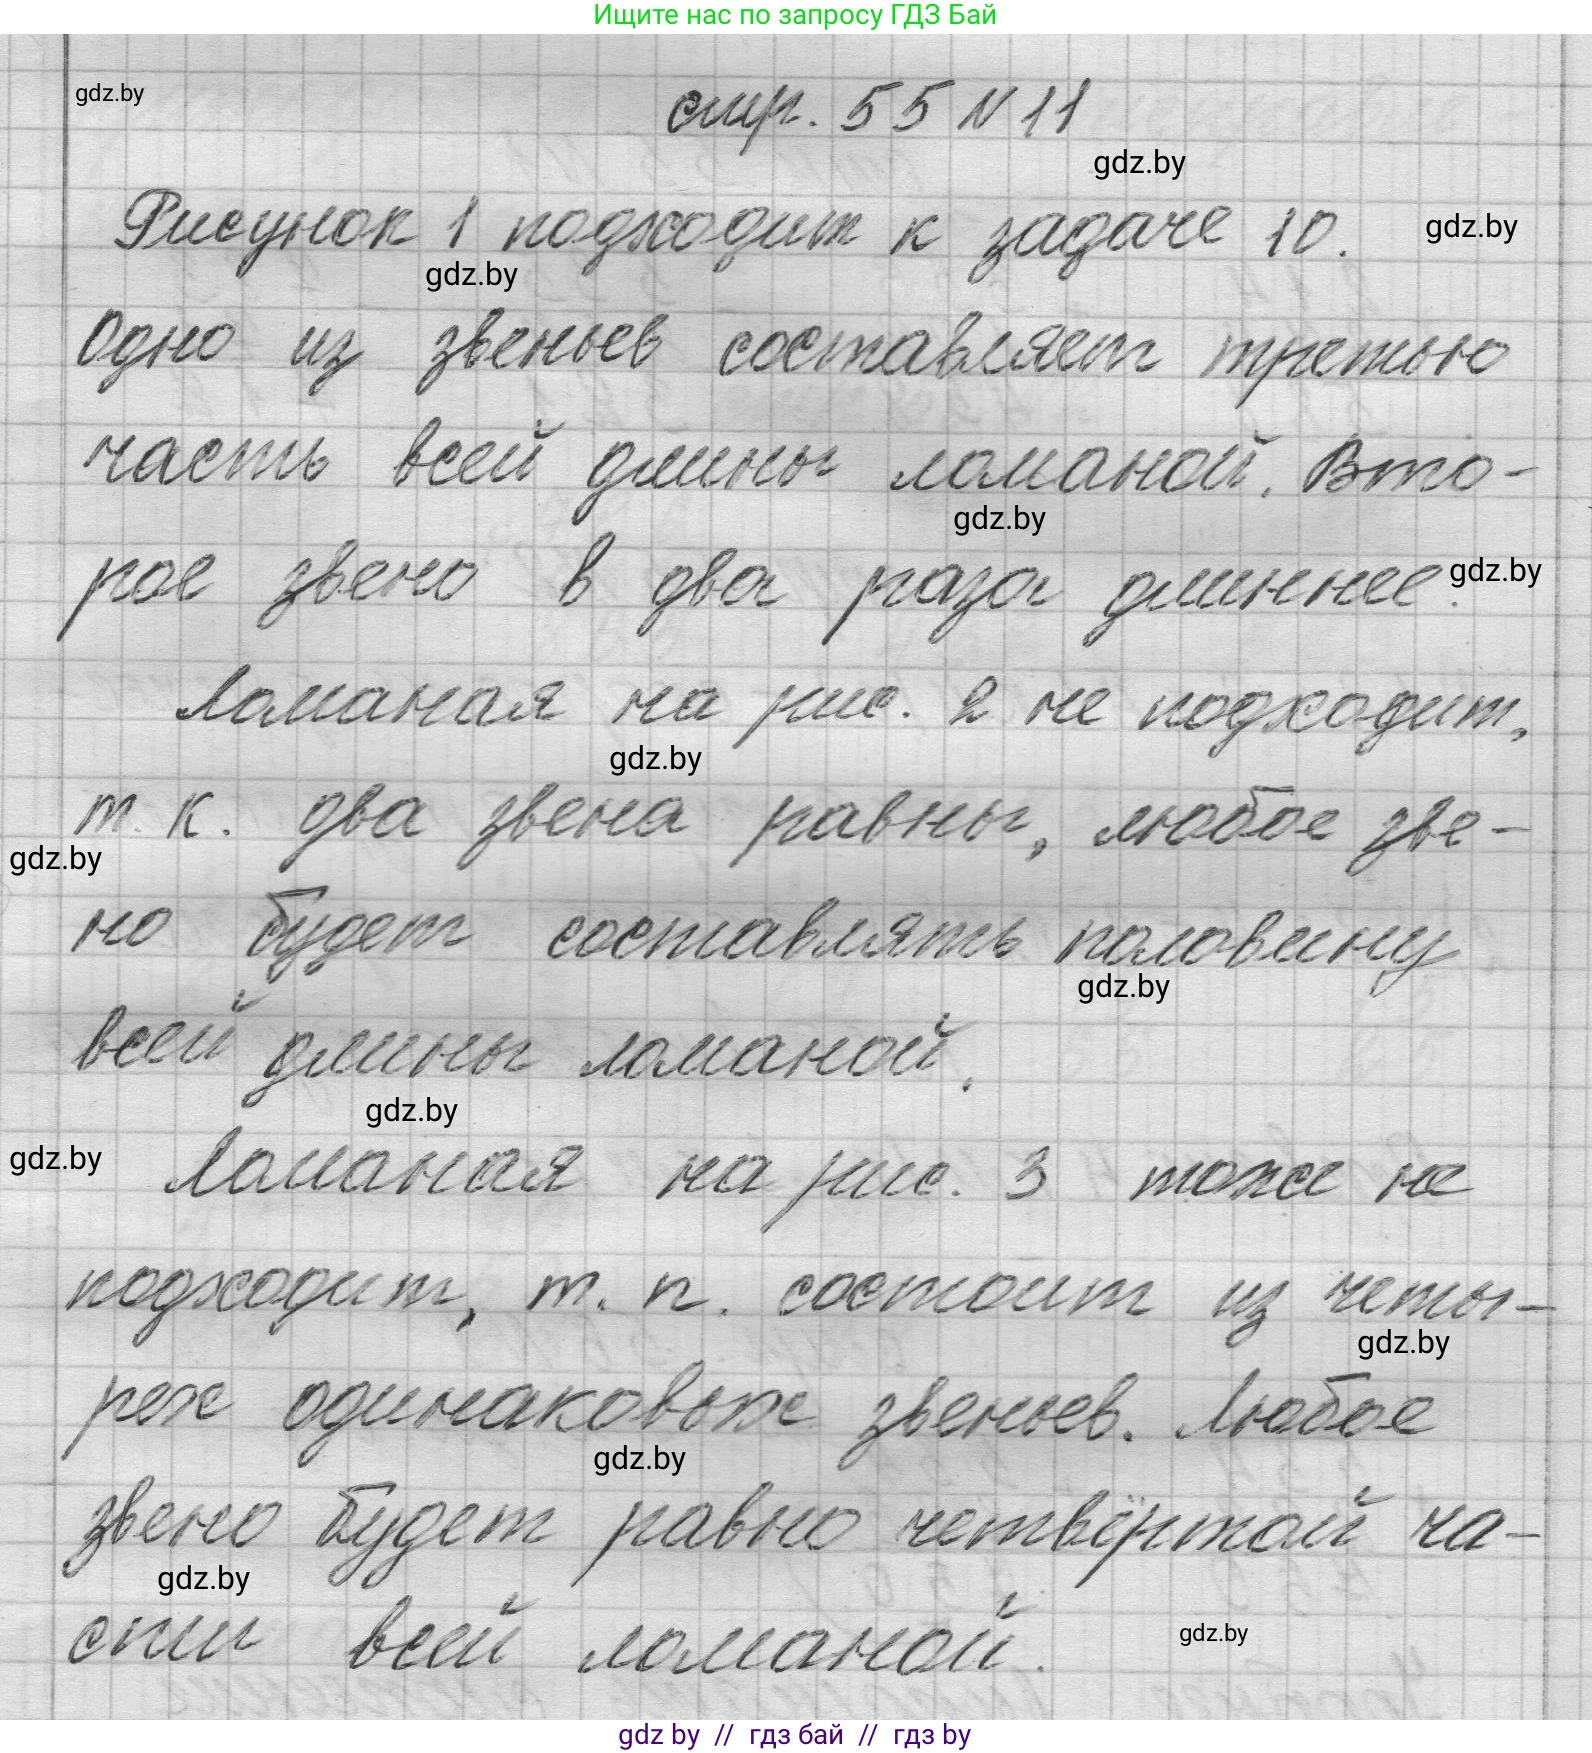 Ищите нас по запросу ГДЗ Бай
gdz.by
стр. 55 N 11
gdz.by
Рисунок 1 подходит к задаче 10.
gdz.by
gdz.by
Одно из звеньев составляет третью
часть всей длины ломаной. Вто-
gdz.by
рое звено в два раза длиннее.
gdz.by
Ломаная на рис. 2 не подходит,
gdz.by
т. к. два звена равны, любое зве-
gdz.by
но будет составлять половину
gdz.by
всей длины ломаной.
gdz.by
gdz.by
Ломаная на рис. 3 тоже не
подходит, т. к. состоит из четы-
gdz.by
рех одинаковых звеньев. Любое
gdz.by
звено будет равно четвёртой ча-
gdz.by
сти всей ломаной.
gdz.by
gdz by // гдз бай // гдз by